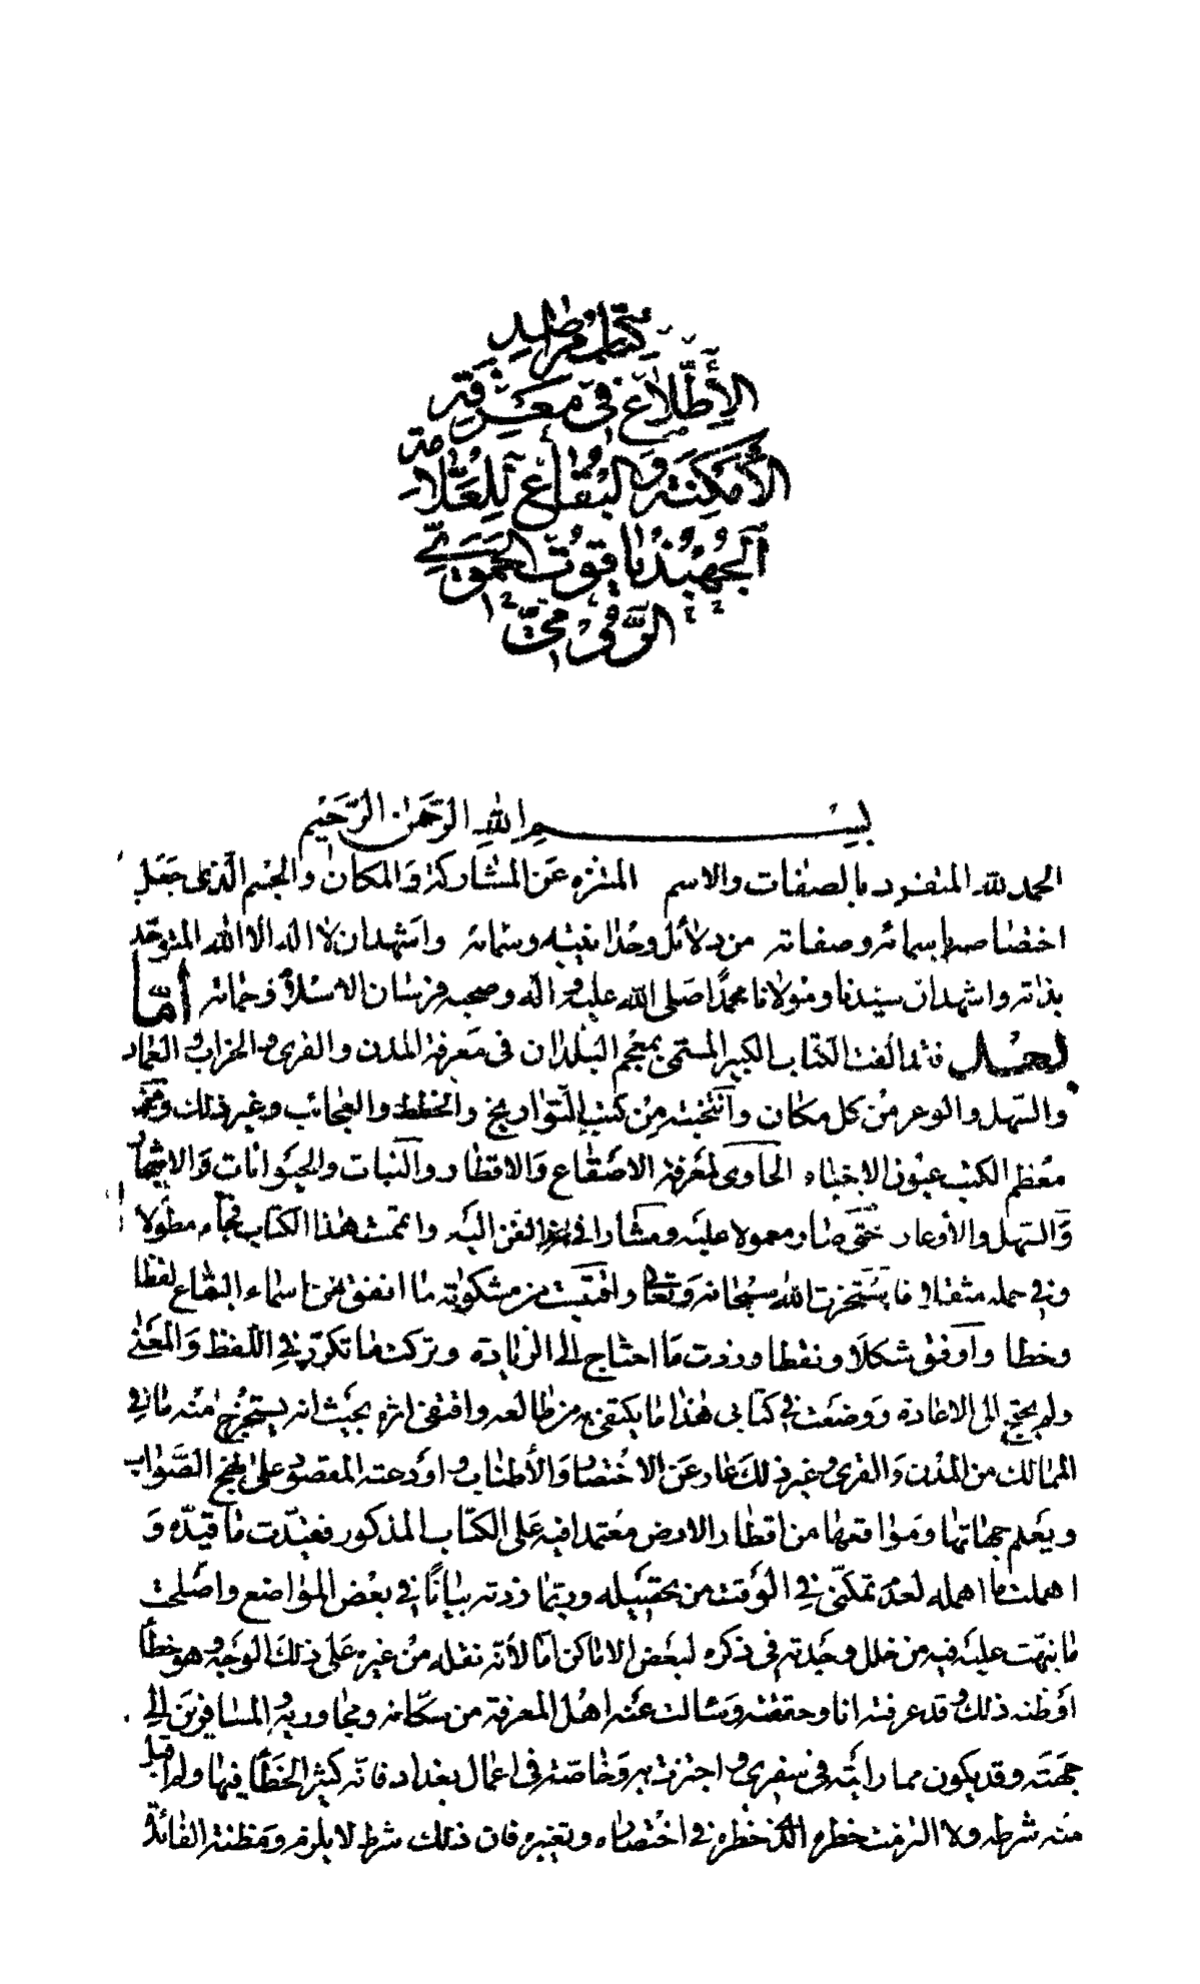 كتاب مراصد
الاطلاع في معرفة
الأمكنة والبقاع للعلامة
الجهبذ ياقوت الحموي
بسم الله الرحمن الرحيم
الحمد لله المنفرد بالصفات والاسم المنزه عن المشاركة والمكان والجسم الذي جعل
اختصاصه باسمائه وصفاته من دلائل وحدانيته وسمائه واشهد ان لا اله الا الله المتوحد
بذاته واشهد ان سيدنا ومولانا محمدا صلى الله عليه وآله وصحبه فرسان الاسلام وحماته أمّا
بعد فلما الفت الكتاب الكبير المسمى بمعجم البلدان في معرفة المدن والقرى والخراب والعمار
والسهل والوعر من كل مكان وانتخبته من كتب التواريخ والخطط والعجائب وغير ذلك ومن
معظم الكتب عيون الاخبار الحاوى لمعرفة الاصقاع والاقطار والنبات والحيوانات والاشجار
والسهل والأوعار حتى صار معمولا عليه ومشارا في هذا الفن اليه واتممت هذا الكتاب فجاء مطولا
وفي حمله مثقلا فاستخرت الله سبحانه وتعالى وانتقيت من مشكوته ما اتفق من اسماء البقاع لفظا
وخطا وأوفق شكلا ونقطا وزدت ما احتاج الى الزيادة وتركت ما تكرر في اللفظ والمعنى
ولم يحتج الى الاعادة ووضعت في كتابي هذا ما يكتفى به من طالعه واقتفى اثره بحيث انه يستخرج منه ما في
الممالك من المدن والقرى وغير ذلك عار عن الاختصار والأطناب واودعته المقصود على نهج الصواب
ويعلم جهاتها ومواقعها من اقطار الارض معتمدا فيه على الكتاب المذكور فقيدت ما قيده و
اهملت ما اهمله لعدم تمكني في الوقت من تحصيله وربما زدته بيانا في بعض المواضع واصلحت
ما نبهت عليه فيه من خلل وجدته في ذكره لبعض الاماكن اما لأنه نقله من غيره على ذلك الوجه وهو خطأ
أو ظنه كذلك وقد عرفته انا وحققته وسالت عنه اهل المعرفة من سكانه ومجاوريه والمسافرين الى
جهته وقد يكون مما رايته في سفري واجتزت به وخاصة في اعمال بغداد فانه كثير الخطأ فيها ولم اقبل
منه شرطه ولا التزمت خطره الذي خطره في اختصاره وتغييره فان ذلك شرط لا يلزم ومظنة الفائدة